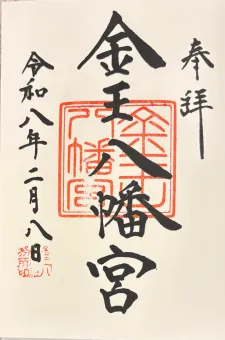 奉拝
金王八幡宮
令和八年二月八日
金王八幡宮